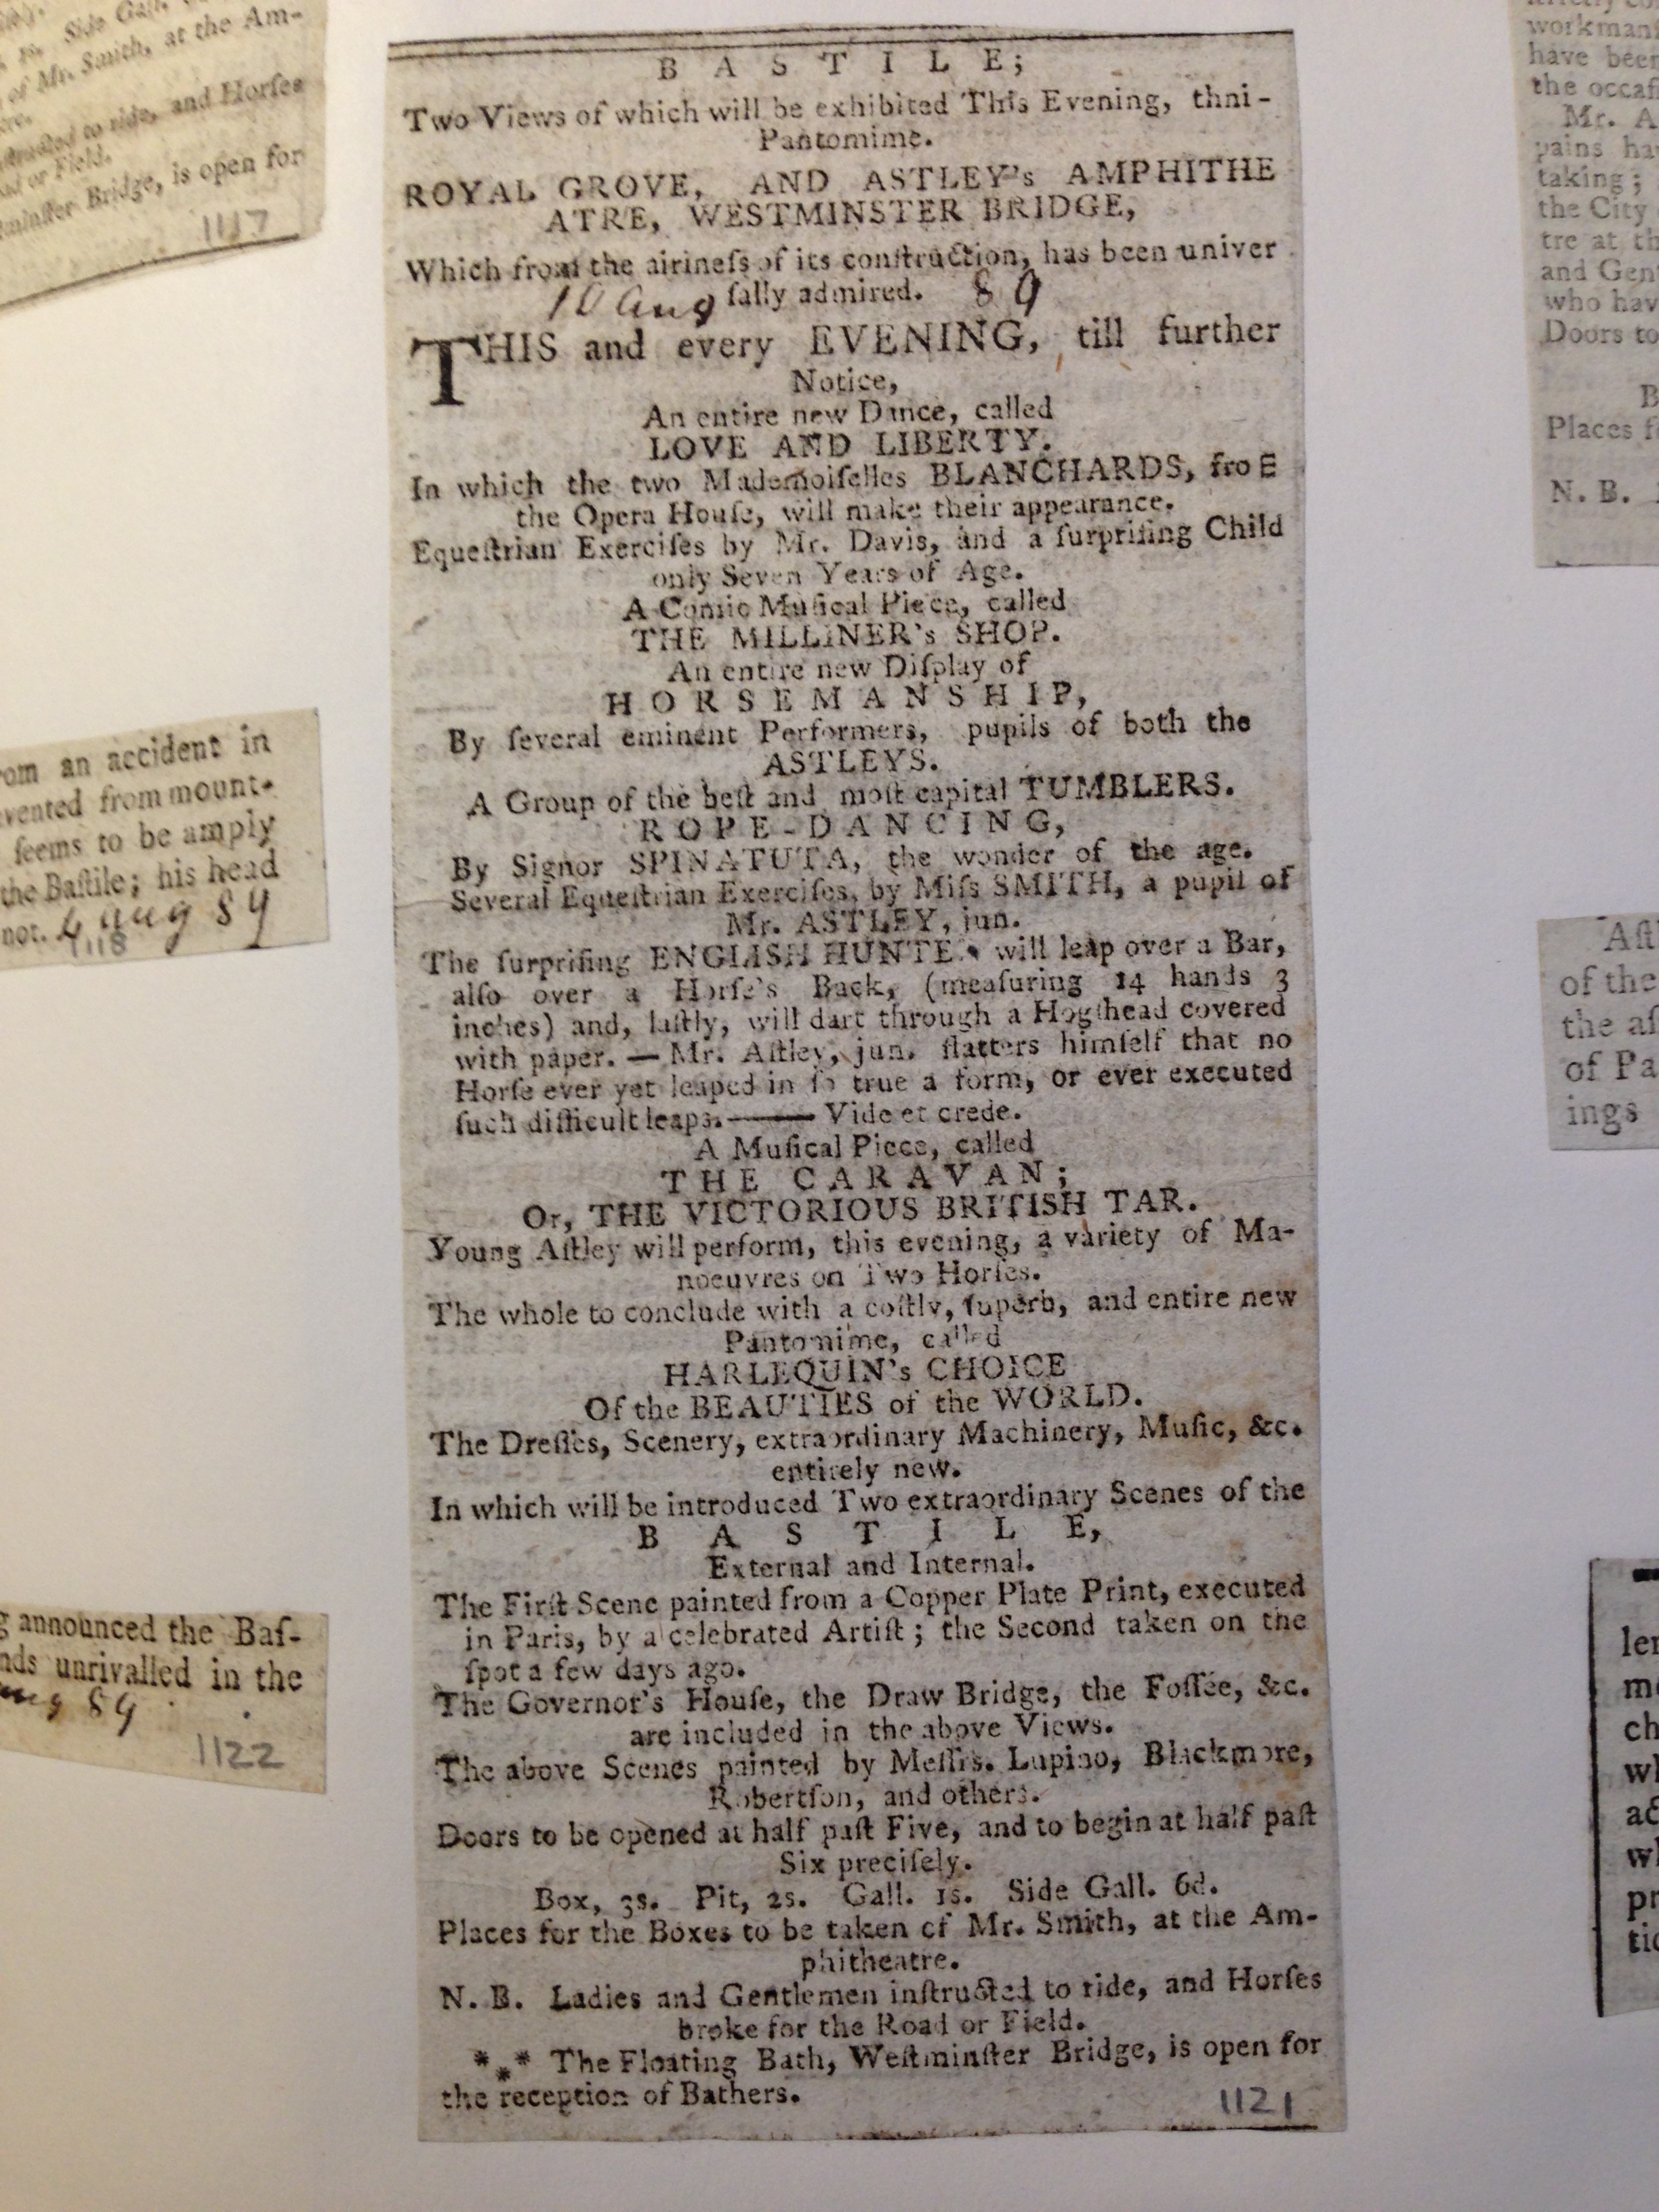 1s. Side Gall.
of Mr. Smith, at the Am-
ructed to ride, and Horſes
or Field.
minſter Bridge, is open for
1117
om an accident in
vented from mount-
ſeems to be amply
the Baſtile; his head
not. 4 aug 89
1118
g announced the Baſ-
nds unrivalled in the
aug 89
1122
BASTILE;
Two Views of which will be exhibited This Evening, thni-
Pantomime.
ROYAL GROVE, AND ASTLEY's AMPHITHE
ATRE, WESTMINSTER BRIDGE,
Which from the airineſs of its conſtruction, has been univer
ſally admired.
10 aug 89
THIS and every EVENING, till further
Notice,
An entire new Dance, called
LOVE AND LIBERTY.
In which the two Mademoiſelles BLANCHARDS, fro E
the Opera Houſe, will make their appearance.
Equeſtrian Exerciſes by Mr. Davis, and a ſurpriſing Child
only Seven Years of Age.
A Comic Muſical Piece, called
THE MILLINER's SHOP.
An entire new Diſplay of
HORSEMANSHIP,
By ſeveral eminent Performers, pupils of both the
ASTLEYS.
A Group of the beſt and moſt capital TUMBLERS.
ROPE-DANCING,
By Signor SPINATUTA, the wonder of the age.
Several Equeſtrian Exerciſes, by Miſs SMITH, a pupil of
Mr. ASTLEY, jun.
The ſurpriſing ENGLISH HUNTER will leap over a Bar,
alſo over a Horſe's Back, (meaſuring 14 hands 3
inches) and, laſtly, will dart through a Hogſhead covered
with paper. — Mr. Aſtley, jun. flatters himſelf that no
Horſe ever yet leaped in ſo true a form, or ever executed
ſuch difficult leaps. —— Vide et crede.
A Muſical Piece, called
THE CARAVAN;
Or, THE VICTORIOUS BRITISH TAR.
Young Aſtley will perform, this evening, a variety of Ma-
noeuvres on Two Horſes.
The whole to conclude with a coſtly, ſuperb, and entire new
Pantomime, called
HARLEQUIN's CHOICE
Of the BEAUTIES of the WORLD.
The Dreſſes, Scenery, extraordinary Machinery, Muſic, &c.
entirely new.
In which will be introduced Two extraordinary Scenes of the
BASTILE,
External and Internal.
The Firſt Scene painted from a Copper Plate Print, executed
in Paris, by a celebrated Artiſt; the Second taken on the
ſpot a few days ago.
The Governor's Houſe, the Draw Bridge, the Foſſée, &c.
are included in the above Views.
The above Scenes painted by Meſſrs. Lupino, Blackmore,
Robertſon, and others.
Doors to be opened at half paſt Five, and to begin at half paſt
Six preciſely.
Box, 3s. Pit, 2s. Gall. 1s. Side Gall. 6d.
Places for the Boxes to be taken of Mr. Smith, at the Am-
phitheatre.
N. B. Ladies and Gentlemen inſtructed to ride, and Horſes
broke for the Road or Field.
*** The Floating Bath, Weſtminſter Bridge, is open for
the reception of Bathers.
1121
workman
have been
the occaſ
Mr. A
pains ha
taking;
the City
tre at th
and Gen
who hav
Doors to
B
Places f
N. B.
Aſt
of the
the aſ
of Pa
ings
ler
me
ch
wh
ac
wh
pr
tic